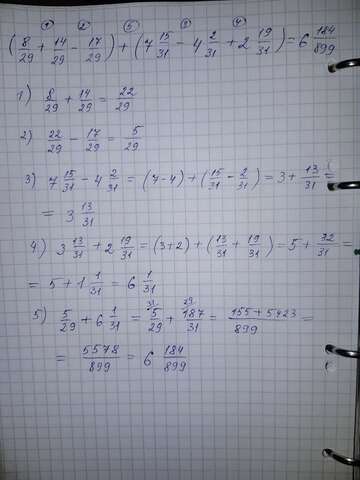 ① ② ⑤ ③ ④
(8/29 + 14/29 - 17/29) + (7 15/31 - 4 2/31 + 2 19/31) = 6 184/899
1) 8/29 + 14/29 = 22/29
2) 22/29 - 17/29 = 5/29
3) 7 15/31 - 4 2/31 = (7-4) + (15/31 - 2/31) = 3 + 13/31 =
= 3 13/31
4) 3 13/31 + 2 19/31 = (3+2) + (13/31 + 19/31) = 5 + 32/31 =
= 5 + 1 1/31 = 6 1/31
5) 5/29 + 6 1/31 = 31 5/29 + 29 187/31 = 155 + 5423/899 =
= 5578/899 = 6 184/899